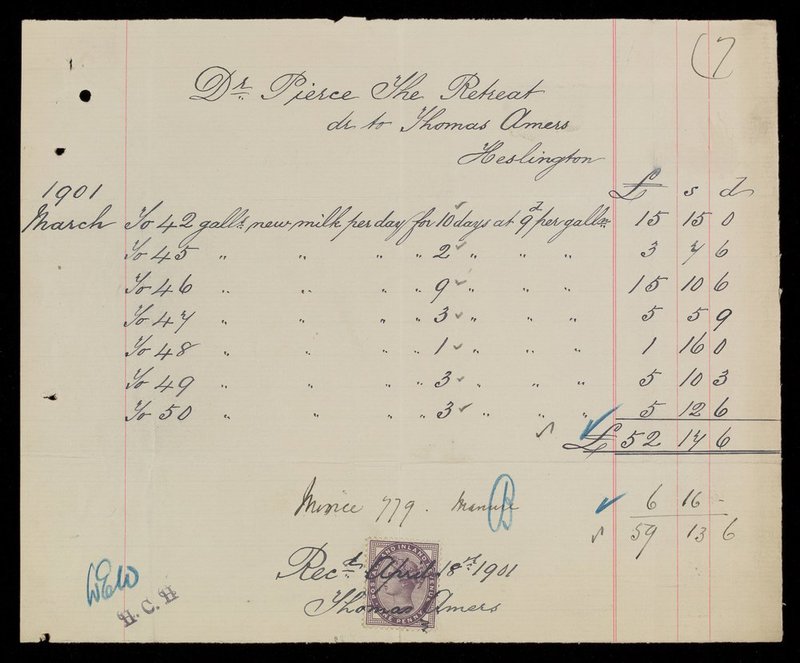 (7
Dr. Pierce The Retreat
dr to Thomas Amers
Heslington
1901 £ s d
March To 42 galls. new milk per day for 10 days at 9d per galln. 15 15 0
To 45 " " " " 2 " " " 3 7 6
To 46 " " " " 9 " " " 15 10 6
To 47 " " " " 3 " " " 5 5 9
To 48 " " " " 1 " " " 1 16 0
To 49 " " " " 3 " " " 5 10 3
To 50 " " " " 3 " " " 5 12 6
£ 52 17 6
779. Manure 6 16 -
B
59 13 6
Recd. April 18th 1901
Thomas Amers
POSTAGE AND INLAND REVENUE
ONE PENNY
WEW
H. C. H